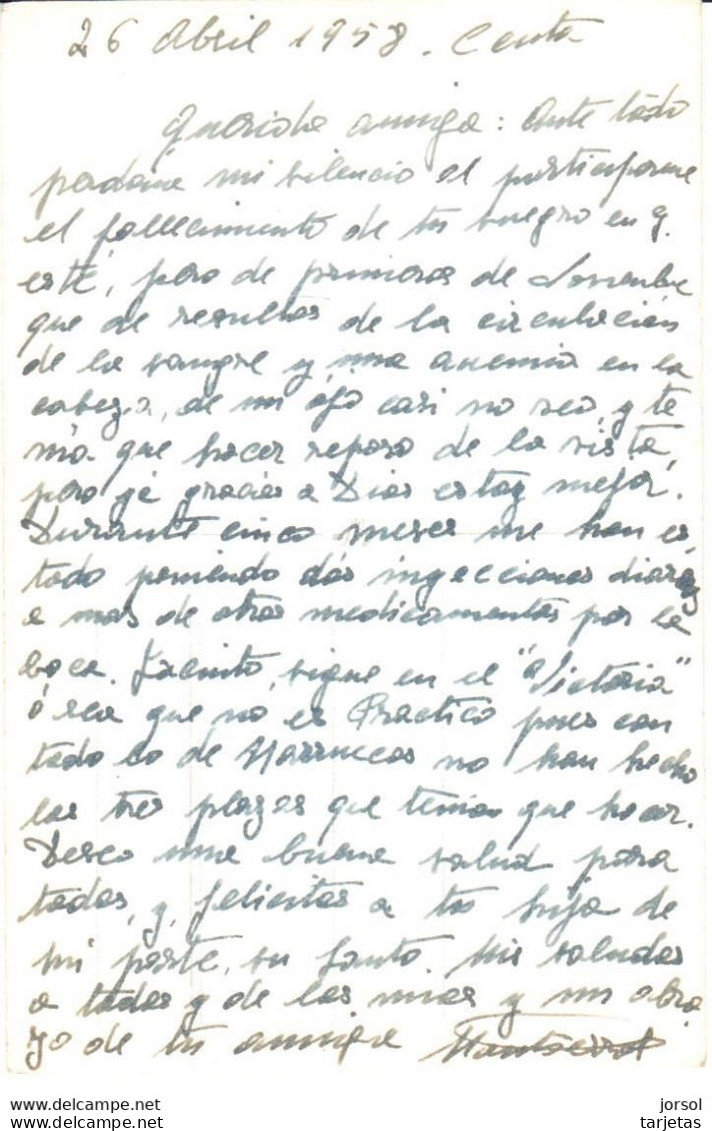 26 Abril 1958. Ceuta
Querida amiga: Ante todo
perdona mi silencio al participarme
el fallecimiento de tu suegro en q.
esté, pero de primeros de
que de resultas de la circulación
de la sangre y una anemia en la
cabeza, de un ojo casi no veo, y te
nia que hacer reposo de la vista,
pero ya gracias a Dios estoy mejor.
Durante cinco meses me han es
tado poniendo dos ingecciones diarias
a mas de otros medicamentos por la
boca. Jacinto, sigue en el "a Victoria"
ó sea que no es Practico pues con
todo lo de Marruecos no han hecho
las tres plazas que tenian que hacer.
Deseo una buena salud para
todos, y, felicitas a tu hija de
mi parte, su Santo. Mis saludos
a todos y de los mios y un abra
zo de tu amiga Montserrat
jorsol
www.delcampe.net tarjetas